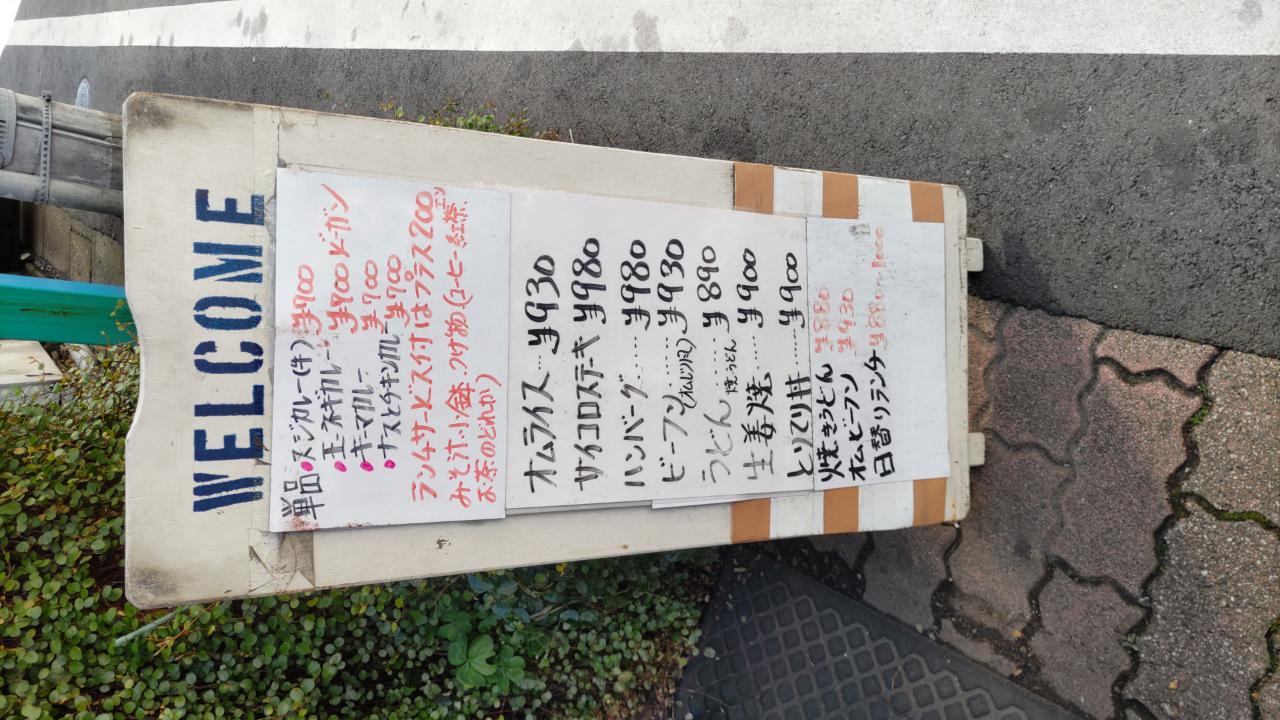 WELCOME
単品●スジカレー(牛) ¥900
●エネギカレー ¥900ビーガン
●キーマカレー ¥700
●ナスとチキンカレー ¥700
ランチサービス付はプラス200エン
みそ汁.小鉢.つけ物.(コーヒー.紅茶.
お茶のどれか)
オムライス…¥930
サイコロステーキ ¥980
ハンバーグ….¥980
ビーフン……¥930
うどん…¥890
焼うどん
生姜焼……¥900
とりてり丼……¥900
焼きうどん ¥880
オムビーフン ¥930
日替りランチ ¥880